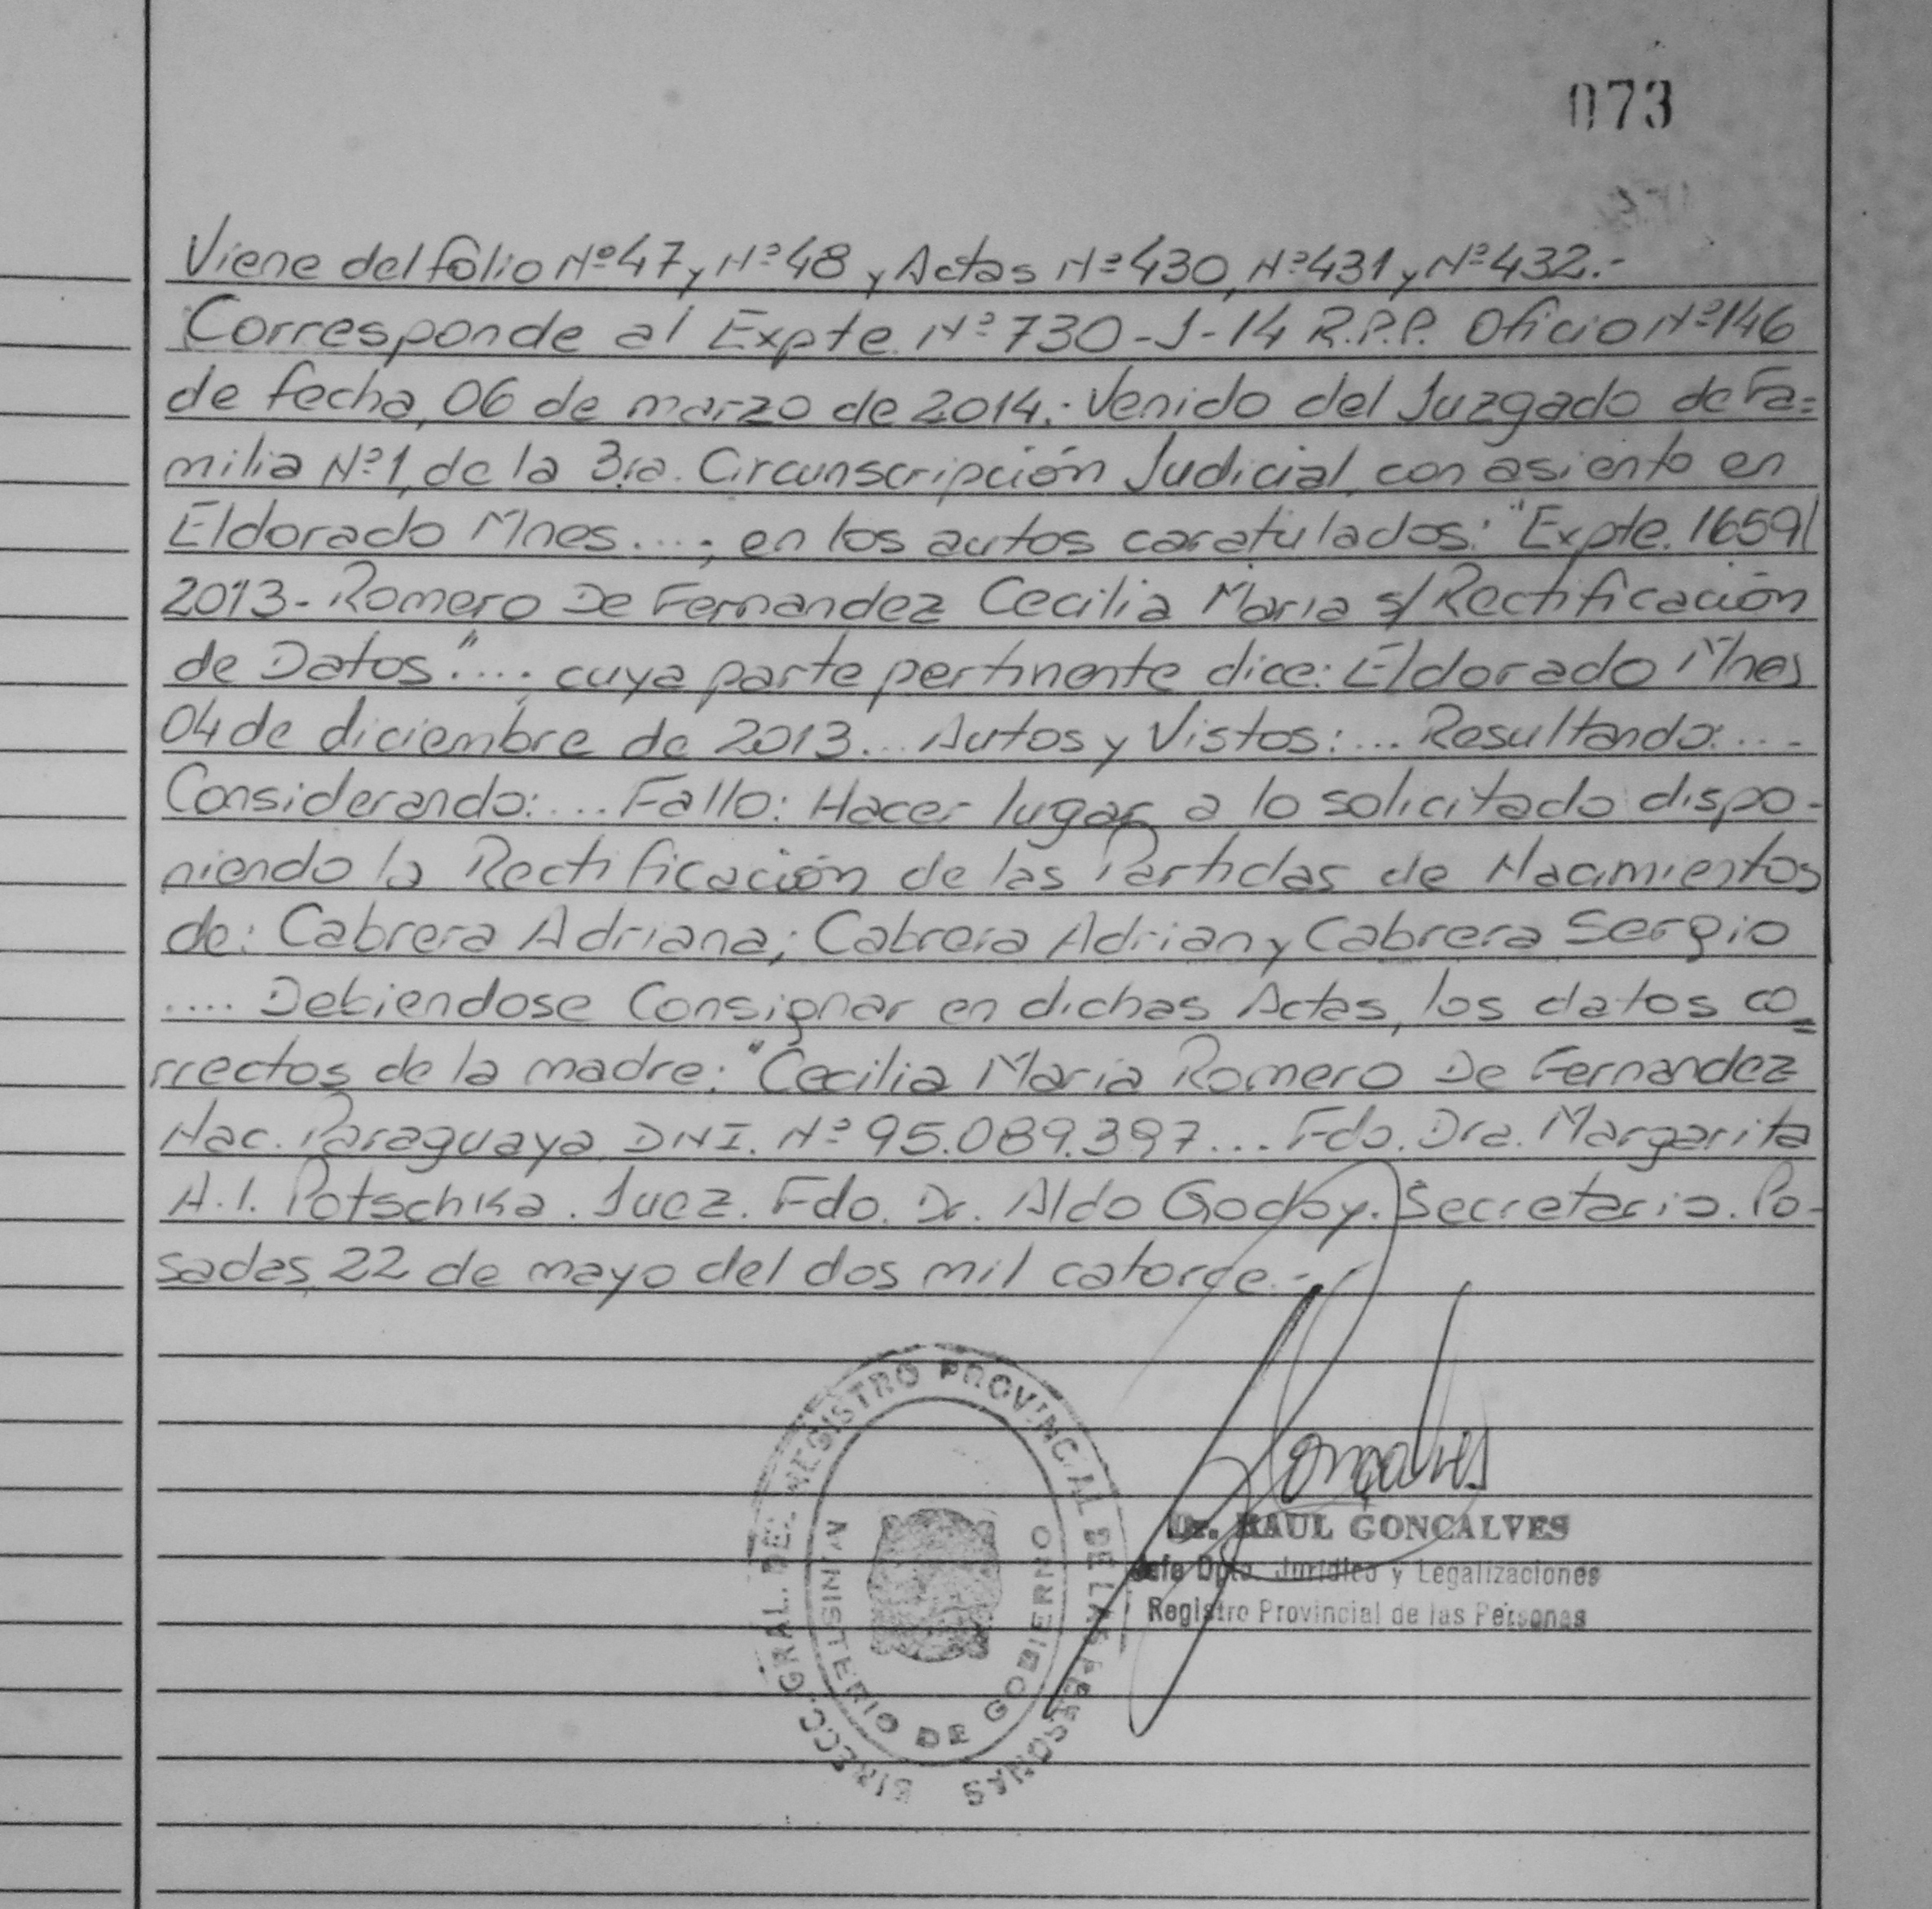 073
Viene del folio Nº47 y Nº48 y Actas Nº430, Nº431 y Nº432.-
Corresponde al Expte. Nº730-J-14 R.P.P. Oficio Nº146
de fecha, 06 de marzo de 2014.- Venido del Juzgado de Fa=
milia Nº1, de la 3ra. Circunscripción Judicial, con asiento en
Eldorado Mnes....; en los autos caratulados: "Expte. 1659/
2013- Romero De Fernandez Cecilia Maria s/ Rectificación
de Datos"....; cuya parte pertinente dice: Eldorado Mnes
04 de diciembre de 2013... Autos y Vistos:... Resultando:....
Considerando:.... Fallo: Hacer lugar a lo solicitado dispo-
niendo la Rectificación de las Partidas de Nacimientos
de: Cabrera Adriana; Cabrera Adrian y Cabrera Sergio
.... Debiendose Consignar en dichas Actas, los datos co=
rrectos de la madre: "Cecilia Maria Romero De Fernandez
Nac. Paraguaya DNI. Nº 95.089.397... Fdo. Dra. Margarita
H.I. Potschka. Juez. Fdo. Dr. Aldo Godoy. Secretario. Po-
sadas, 22 de mayo del dos mil catorce.-
Gonçalves
Dr. RAUL GONCALVES
Jefe Dpto. Jurídico y Legalizaciones
Registro Provincial de las Personas
DIRECC. GRAL. DEL REGISTRO PROVINCIAL DE LAS PERSONAS
MINISTERIO DE GOBIERNO